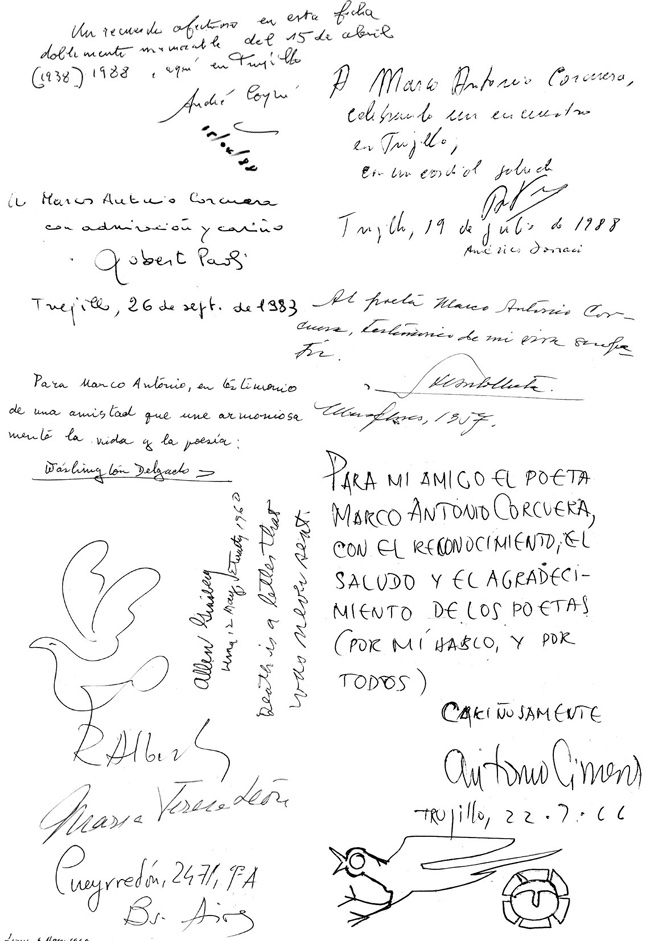 Un recuerdo afectuoso en esta ficha
doblemente memorable del 15 de abril
(1938) 1988, aquí en Trujillo
André Coyné
15/04/88
A Marco Antonio Corcuera,
celebrando un encuentro
en Trujillo,
con un cordial saludo
Trujillo, 19 de julio de 1988
Américo Ferrari
A Marco Antonio Corcuera
con admiración y cariño
Robert Paoli
Trujillo, 26 de sept. de 1983
Al poeta Marco Antonio Cor-
cuera, testimonio de mi viva simpa-
tía.
Miraflores, 1957.
Para Marco António, en testimonio
de una amistad que une armoniosa
mente la vida y la poesía:
Wáshington Delgado
Allen Ginsberg
Lima 12 May, 1960
Death is a letter that
was never sent.
PARA MI AMIGO EL POETA
MARCO ANTONIO CORCUERA,
CON EL RECONOCIMIENTO, EL
SALUDO Y EL AGRADECI-
MIENTO DE LOS POETAS
(POR MÍ HABLO, Y POR
TODOS)
CARIÑOSAMENTE
Antonio Cisneros
TRUJILLO, 22.7.66
R Alberti
Maria Teresa León
Pueyrredón, 2471, 9º A
Bs. Aires